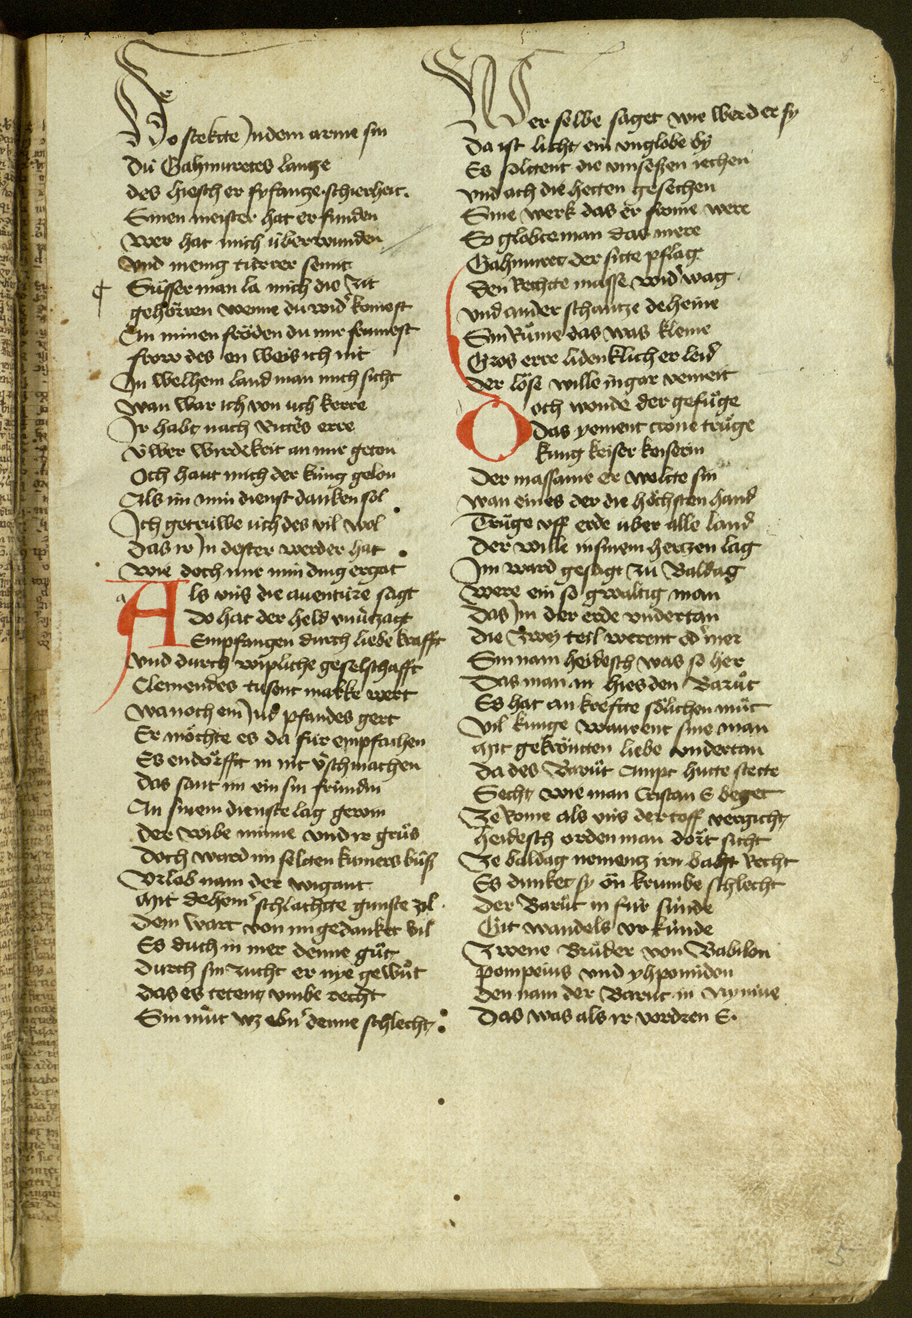 Do stekcte Jn dem arme sin
Dü Gahmuretes lantze
des hiesch er fyfantze schierheit.
Sinen meister hat er funden
Wer hat mich überwunden
Vnd menig türrer semit
Süsser man la mich die zit
gehören wenne du wid' komest
An minen fröden du mir frumest
frow des en weis ich nit
In welhem land man mich sicht
wan war ich von üch kerre
Ir habt nach rittes erre
Vwer wirdekeit an mir geton
Och hant mich der küng gelon
Als im min dienst danken sol
Ich getrüwe üch des vil wol
Das ir Jn dester werder hat
Wie doch mir min ding ergat
Als vns die auentüre sagt
Do hat der held vnütz agt
Empfangen durch liebe krafft
vnd durch wipliche geselschafft
Clemendes tusent makke wert
Wa noch ein Jud pfandes gert
Er möchte es da für empfachen
Es endorfft in nit v'schmachen
das sant im ein sin fründin
An sinem dienste lag gewin
der wibe minne vnd ir grüs
Doch ward im selten kumers büs
Vrlob nam der wigant
Mit dehein schlachtge gunste zil
Dem wart von im gedanket vil
Es duch in mer denne güt
durch sin zucht er nye gewüt
das es tetent vmbe recht
Sin müt wz ebn' denne schlecht
Wer selbe saget wie werd er sy
Da ist licht ein vnglobe by
Es söltent die vmsessen iechen
vnd ach die hetten gesechen
Sine werk das er frome were
So globte man das mere
Gahmuret der sitte pflag
den Rechte masse wid' wag
vnd ander schantze deheine
Sin Rüme das was kleine
Gros erre lidenklich er leid
der löse wille in gar vermeit
Doch wonde der gefüge
das yement crone trüge
küng keiser keiserin
Der massanie er wolte sin
wan eines der die höchsten hand
Trüge vff erde uber alle land
der wille in sinem hertzen lag
Im ward gesagt zü Baldag
were ein so gwaltig man
Das Jm der erde vndertan
die zwey teil werent od' mer
Sin nam heidesch was so her
Das man in hies den Barüt
Es hat an kreffte sölichen müt
Vil kunge warent sine man
Mit gekrönten liebe vndertan
da des Barüt Ampt hütte stette
Secht wie man Cristan E beget
Ze Rome als vns der toff vergicht
heidesch orden man dort sicht
Ze baldag nement irn babst Recht
Es dunket sy ön krumbe schlecht
Der Barüt in für sünde
Git wandels vrkünde
Zwene Brüder von Babilon
Pompeius vnd yhpomidon
den nam der Barüt in Nyniue
Das was als ir vordren E.
5